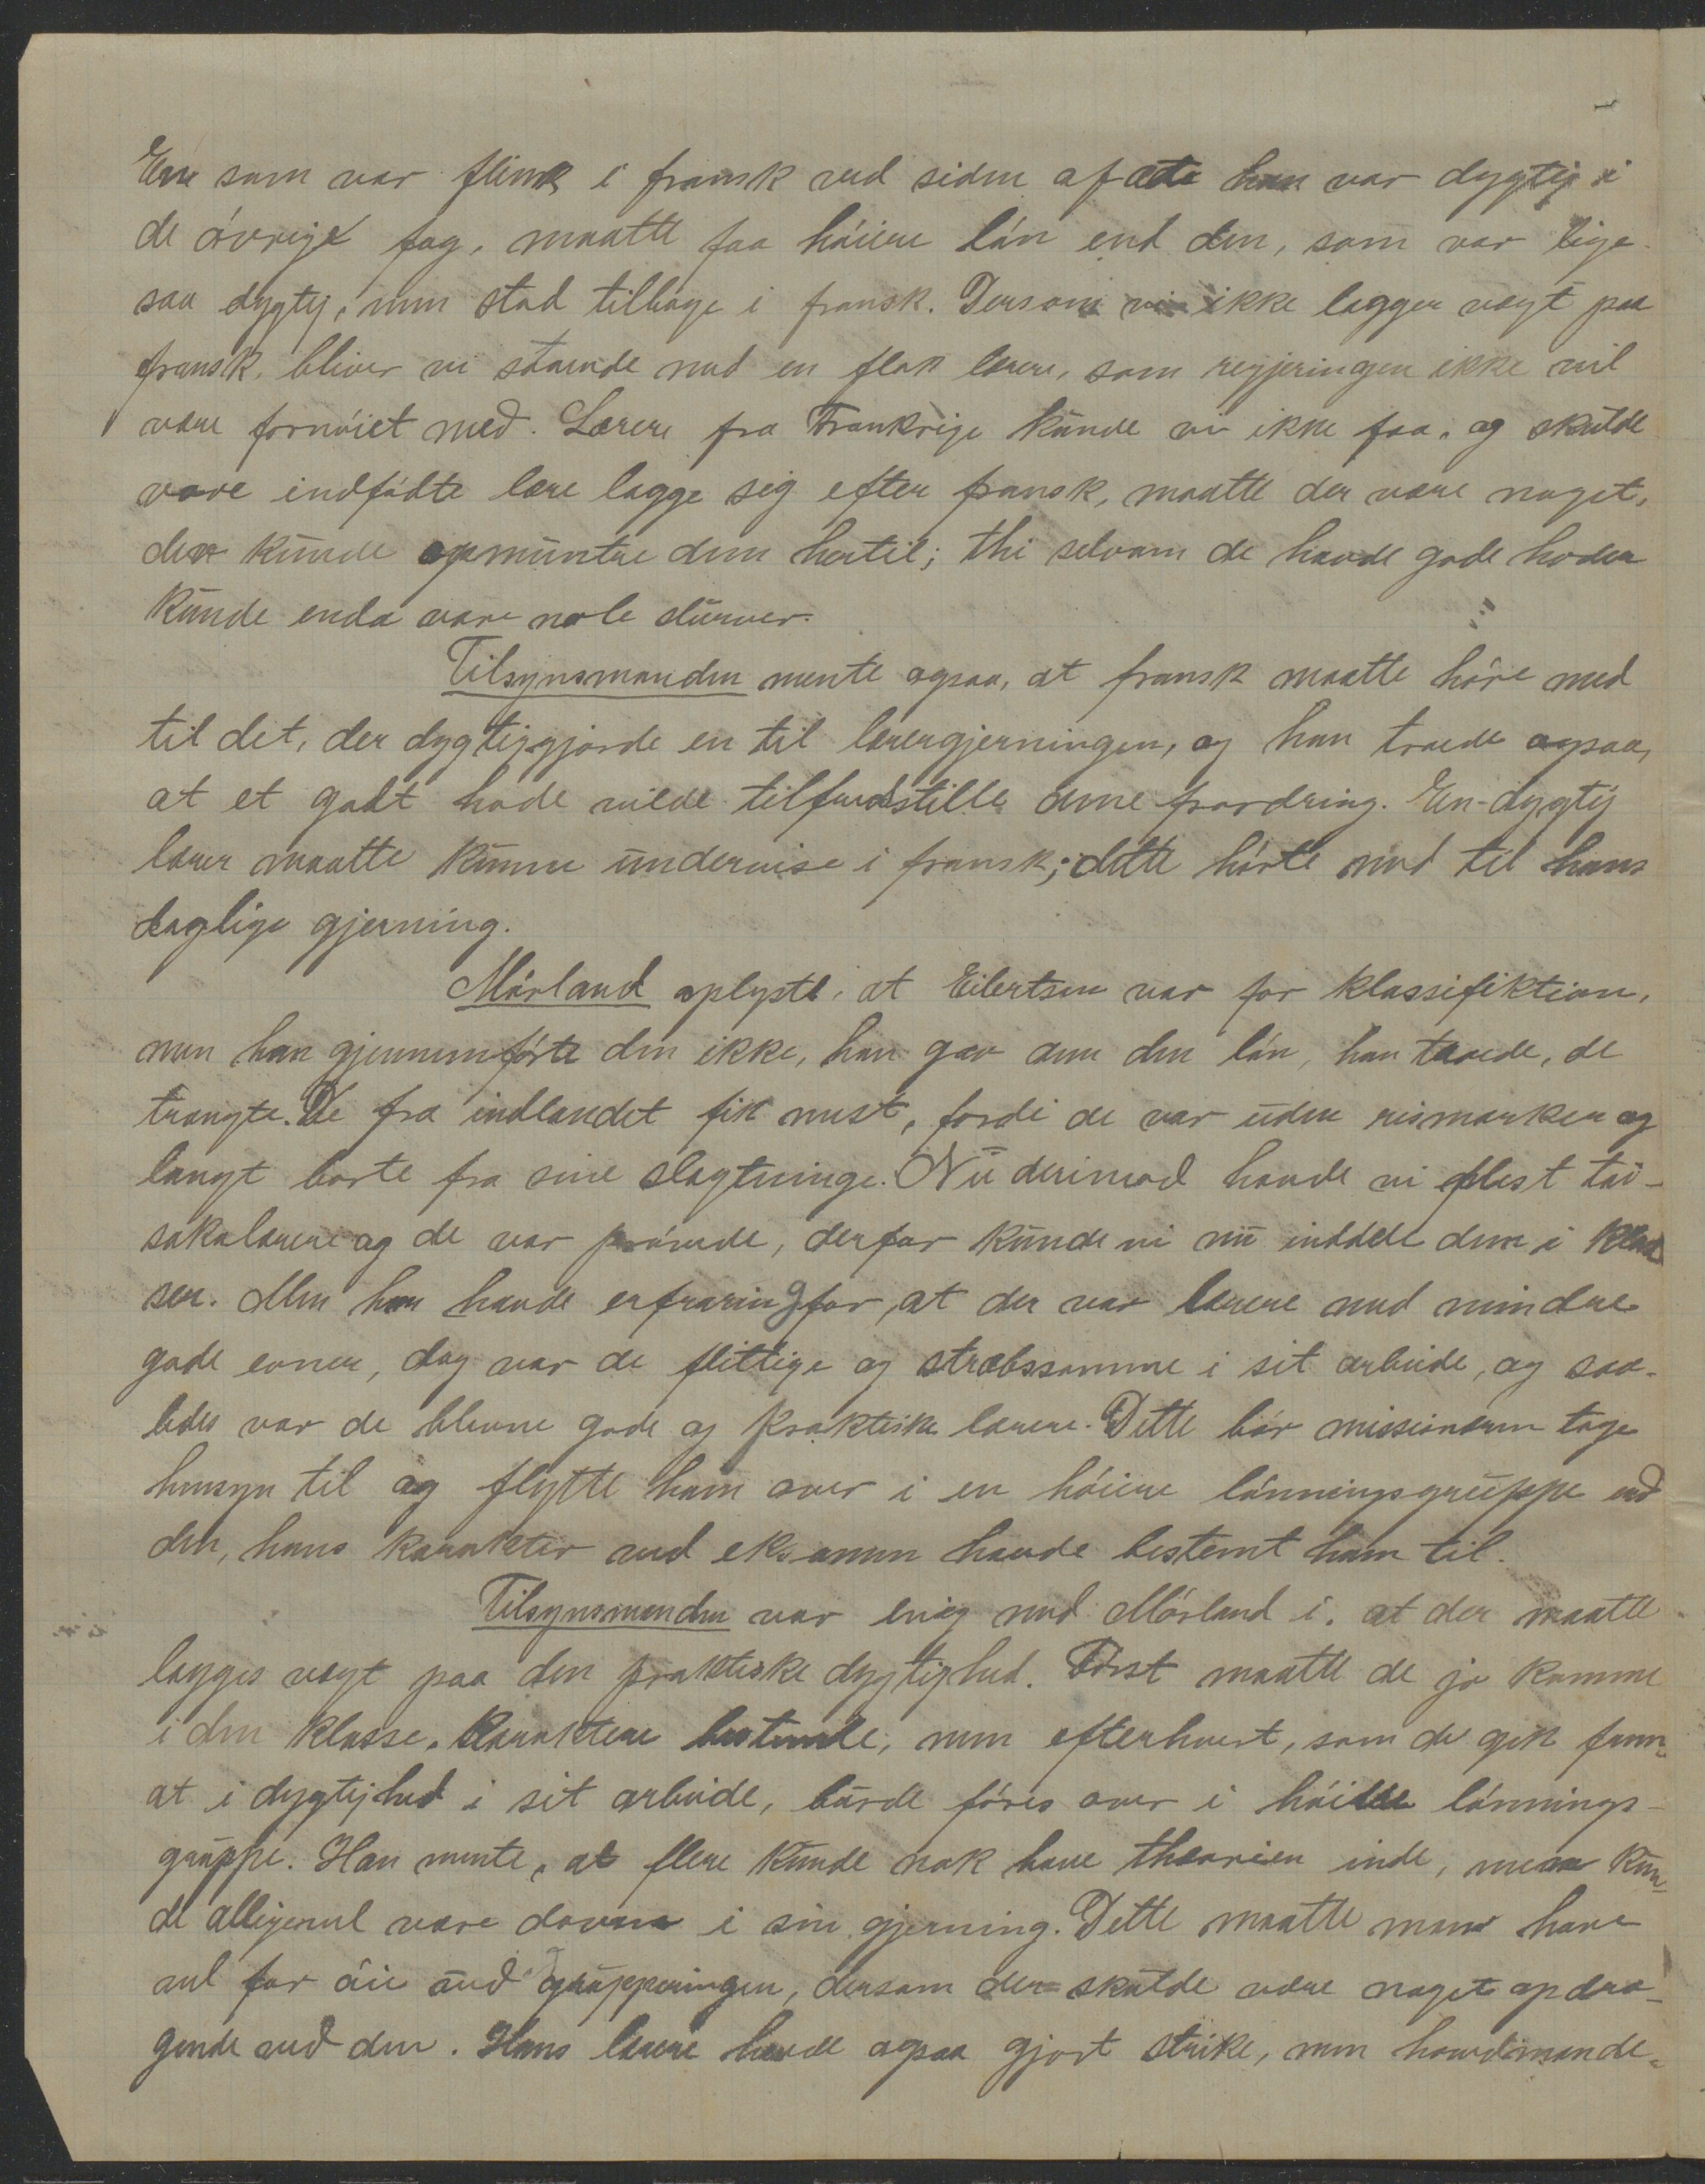 En som var flink i fransk ved siden af at han var dygtig i
de øvrige fag, maatte faa høiere løn end den, som var lige-
saa dygtig, men stod tilbage i fransk. Dersom vi ikke lægger vægt paa
fransk, bliver vi staaende med en flok lærere, som regjeringen ikke vil
være fornøiet med. Lærere fra Frankrige kunde vi ikke faa, og skulde
vore indfødte lære lægge sig efter fransk, maatte der være noget,
der kunde opmuntre dem hertil; thi selvom de havde gode hoder
kunde enda være nole slurver.
Tilsynsmanden mente ogsaa, at fransk maatte høre med
til det, der dygtiggjorde en til lærergjerningen, og han troede ogsaa,
at et godt hode vilde tilfredsstille denne fordring. En dygtig
lærer maatte kunne undervise i fransk; dette hørte med til hans
daglige gjerning.
Mørland oplyste, at Eilertsen var for klassifiktion,
men han gjennemførte den ikke, han gav dem den løn, han troede, de
trængte. De fra indlandet fik mest, fordi de var uden rismarker og
langt borte fra sine slægtninge. Nu derimod havde vi flest tai-
sakalærere og de var prøvede, derfor kunde vi nu inddele dem i klas
ser. Men han havde erfraring for, at der var lærere med mindre
gode evner, dog var de flittige og stræbssomme i sit arbeide, og saa-
ledes var de blevne gode og praktiske lærere. Dette bør missionæren tage
hensyn til og flytte ham over i en høiere lønningsgruppe end
den, hans karakter ved eksamen havde bestemt ham til.
Tilsynsmanden var enig med Mørland i, at der maatte
lægges vægt paa den praktiske dygtighed. Først maatte de jo komme
i den klasse, karaktere bestemte, men efterhvert, som de gik frem-
at i dygtighed i sit arbeide, burde føres over i høiere lønnings-
gruppe. Han mente, at flere kunde nok have theorien inde, men kun-
de alligevel være dovne i sin gjerning. Dette maatte man have
vel for øie ved grupperingen, dersom der skulde være noget opdra-
gende ved den. Hans lærere havde ogsaa gjort strike, men hovedmænde-